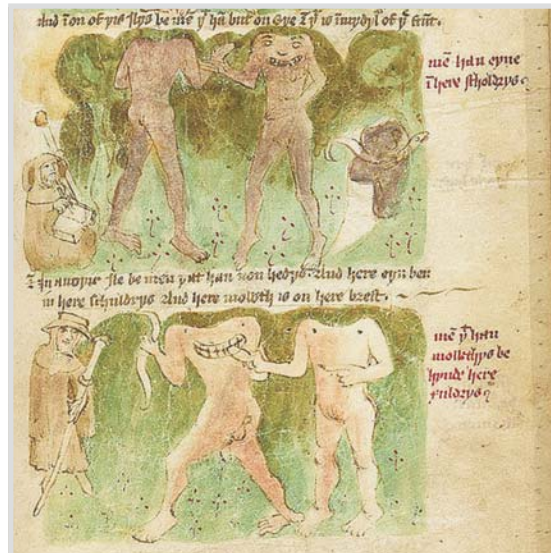 And ī on of yis Ilys be mē yͭ hā but on Eye & yͭ is ī mydyl of yͤ frūt.
mē han eyne
ī here scholdrys
In anoyir Ile be men yat han non hedys. And here eyn ben
in here schuldrys And here mowth is on here brest.
mē yͭ han
mowthys be
hynde here